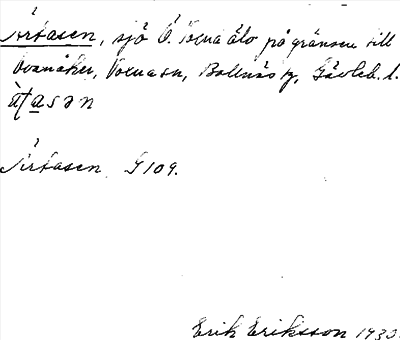 Artasen, sjö Ö. Voxna älv på gränsen till
Ovanåker, Voxna sn, Bollnäs tg, Gävleb. l.
Artasen G 109.
Erik Eriksson 193